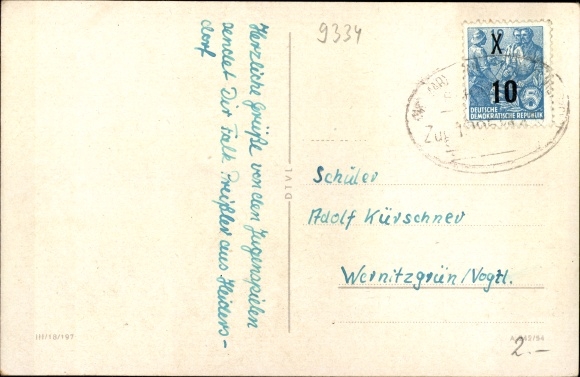 Herzliche Grüße von den Jugendspielen
sendet Dir Falk Preißler aus Heiders-
dorf
9334
X
10
DEUTSCHE
DEMOKRATISCHE REPUBLIK
Zug
Schüler
Adolf Kürschner
Wernitzgrün/Vogtl.
III/18/197
2.-